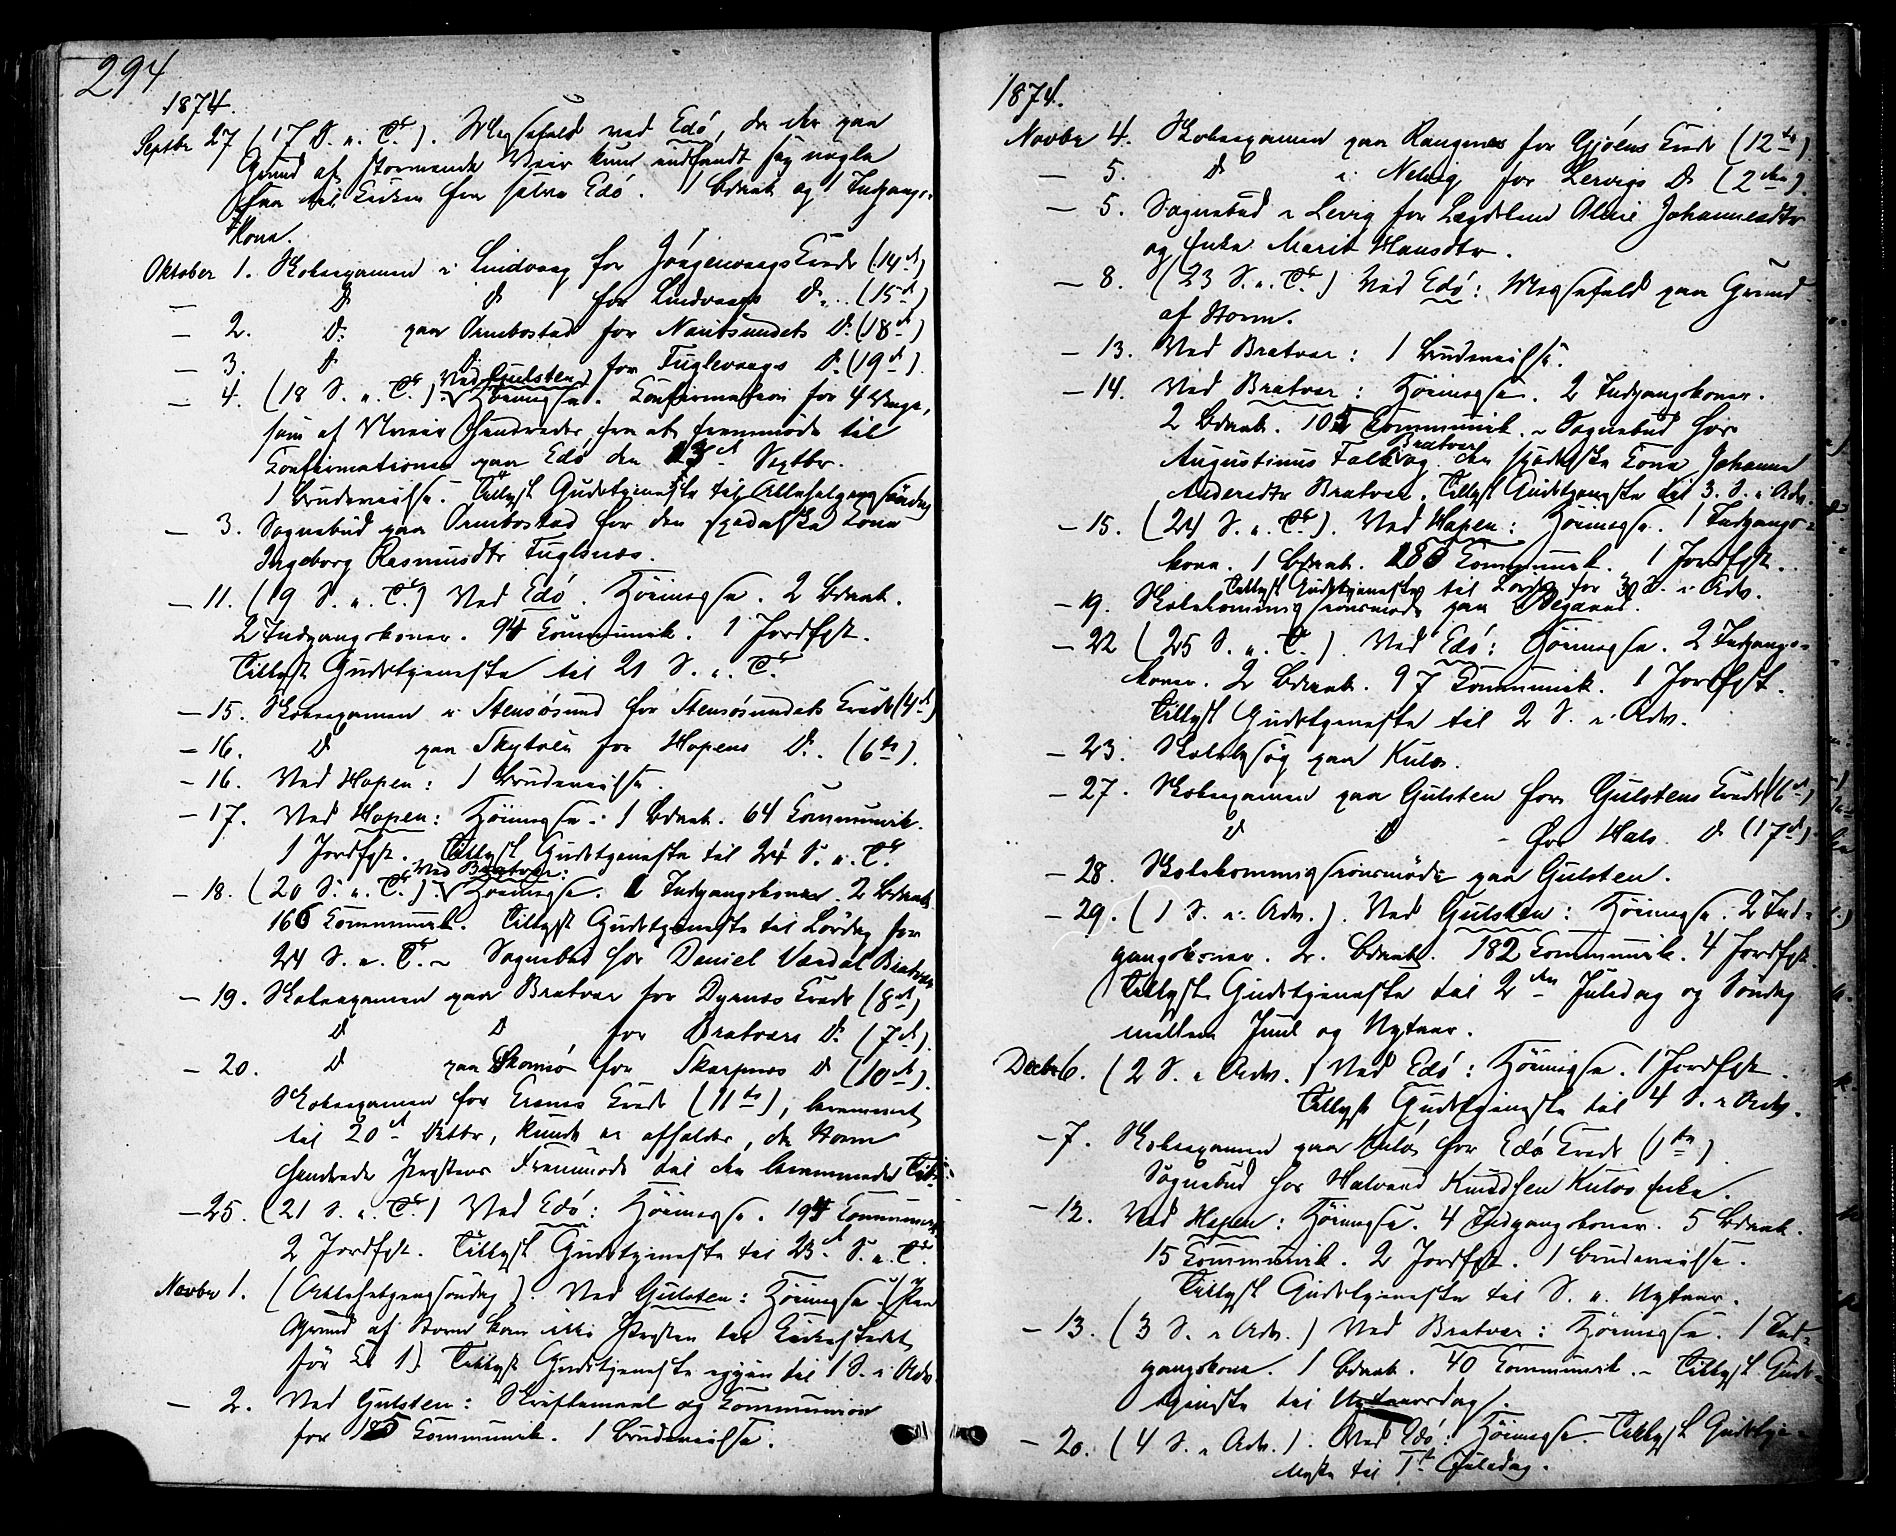 294
1874.
Septbr 27 (17 S. e. Tr.). Messefald ved Edø, da der paa
Grund af stormende Veir kun indfandt sig nogle
Faa til Kirken fra selve Edø. 1 Bdaab og 1 Indgangs-
Kone.
Oktober 1. Skoleexamen i Lindvaag for Jørgenvaags Kreds (14d)
— D D for Lindvaags D. (15d)
— 2. D: paa Ormbostad for Navitsundets D. (18d)
— 3. D D. for Fuglevaags D. (19d).
— 4. (18 S. e. Tr.). Ved Gulsten Høimesse. Confirmation for 4 Unge,
som af Uveir hindredes fra at fremmøde til
Confirmationen paa Edø den 13d Septbr.
1 Brudevielse. Tillyst Gudstjeneste til Allehelgensøndag
— 3. Sognebud paa Ormbostad hos den spedalske Kone
Ingeborg Rasmusdtr Fuglsnes.
— 11. (19 S. e. Tr.) Ved Edø. Høimesse. 2 Bdaab.
2 Indgangskoner. 94 Communik. 1 Jordfst.
Tillyst Gudstjeneste til 21 S. e. Tr.
— 15. Skoleexamen i Stensøsund for Stensøsundets Kreds (4d)
— 16. D paa Skytøen for Hopens D. (6te).
— 16. Ved Hopen: 1 Brudevielse.
— 17. Ved Hopen: Høimesse. 1 Bdaab. 64 Communik.
1 Jordfst. Tillyst Gudstjeneste til 24 S. e. Tr.
— 18. (20 S. e. Tr.). Ved Bratvær: Høimesse. 1 Indgangskone. 2 Bdaab
166 Communik. Tillyst Gudstjeneste til Lørdag før
24 S. e. Tr. – Sognebud hos Daniel Værdal Bratvær
— 19. Skoleexamen paa Bratvær for Dyrnes Kreds (8d)
D D for Bratværs D. (7d).
— 20. D paa for Skarpnes D (10d).
Skoleexamen for Kreds (11te), berammet
til 20d Oktbr, kunde ei afholdes, da Storm
hindrede Prestens Fremmøde til den berammede Tid.
— 25. (21 S. e. Tr.) Ved Edø: Høimesse. 194 Communik.
2 Jordfst. Tillyst Gudstjeneste til 23d S. e. Tr.
Novbr 1. (Allehelgensøndag). Ved Gulsten: Høimesse (Paa
Grund af Storm kom ikke Presten til Kirkestedet
før Kl 1). Tillyst Gudstjeneste igjen til 1 S. i Adv.
— 2. Ved Gulsten: Skriftemaal og Communion
for 185 Communik. 1 Brudevielse.
1874.
Novbr 4. Skoleexamen paa Rangnes for Gjøens Kreds (12te)
— 5. D i Nelvig for Lervigs D. (2den).
— 5. Sognebud i Levig for Lægdslem Olline Johannesdtr
og Enke Marit Hansdtr.
— 8. (23 S. e. Tr.) Ved Edø: Messefald paa Grund
af Storm.
— 13. Ved Bratvær: 1 Brudevielse.
— 14. Ved Bratvær: Høimesse. 2 Indgangskoner.
2 Bdaab. 105 Communik. – Sognebud hos
Augustinus Falk Bratvær og den spedalske Kone Johanna
Andersdtr Bratvær. Tillyst Gudstjeneste til 3. S. i Adv.
— 15. (24 S. e. Tr.). Ved Hopen: Høimesse. 1 Indgangs-
kone. 1 Bdaab. 186 Communik. 1 Jordfst.
Tillyst Gudstjeneste til Lørdag før 3 S. i Adv.
— 19. Skolekommissionsmøde paa
— 22 (25 S. e. Tr.). Ved Edø: Høimesse. 2 Indgangs-
koner. 2 Bdaab. 97 Communik. 1 Jordfst.
Tillyst Gudstjeneste til 2 S. i Adv.
— 23. Skolebesøg paa Kulø.
— 27. Skoleexamen paa Gulsten for Gulstens Kreds (16d)
D D – for Hals D (17d)
— 28. Skolekommissionsmøde paa Gulsten.
— 29. (1 S. i Adv.). Ved Gulsten: Høimesse. 2 Ind-
gangskoner. 2. Bdaab. 182 Communik. 4 Jordfst.
Tillyst Gudstjeneste til 2den Juledag og Søndag
mellem Juul og Nytaar.
Decbr 6. (2 S. i Adv.) Ved Edø: Høimesse. 1 Jordfst.
Tillyst Gudstjeneste til 4 S. i Adv.
— 7. Skoleexamen paa Kulø for Edø Kreds (1te)
Sognebud hos Halvard Knudsen Kuløs Enke.
— 12. Ved Hopen: Høimesse. 4 Indgangskoner. 5 Bdaab.
15 Communik. 2 Jordfst. 1 Brudevielse.
Tillyst Gudstjeneste til S. e. Nytaar.
— 13. (3 S. i Adv.) Ved Bratvær: Høimesse. 1 Ind-
gangskone. 1 Bdaab. 40 Communik. – Tillyst Guds-
tjeneste til Nytaarsdag.
— 20. (4 S. i Adv.). Ved Edø: Høimesse – Tillyst Gudstje-
neste til 1ste Juledag.